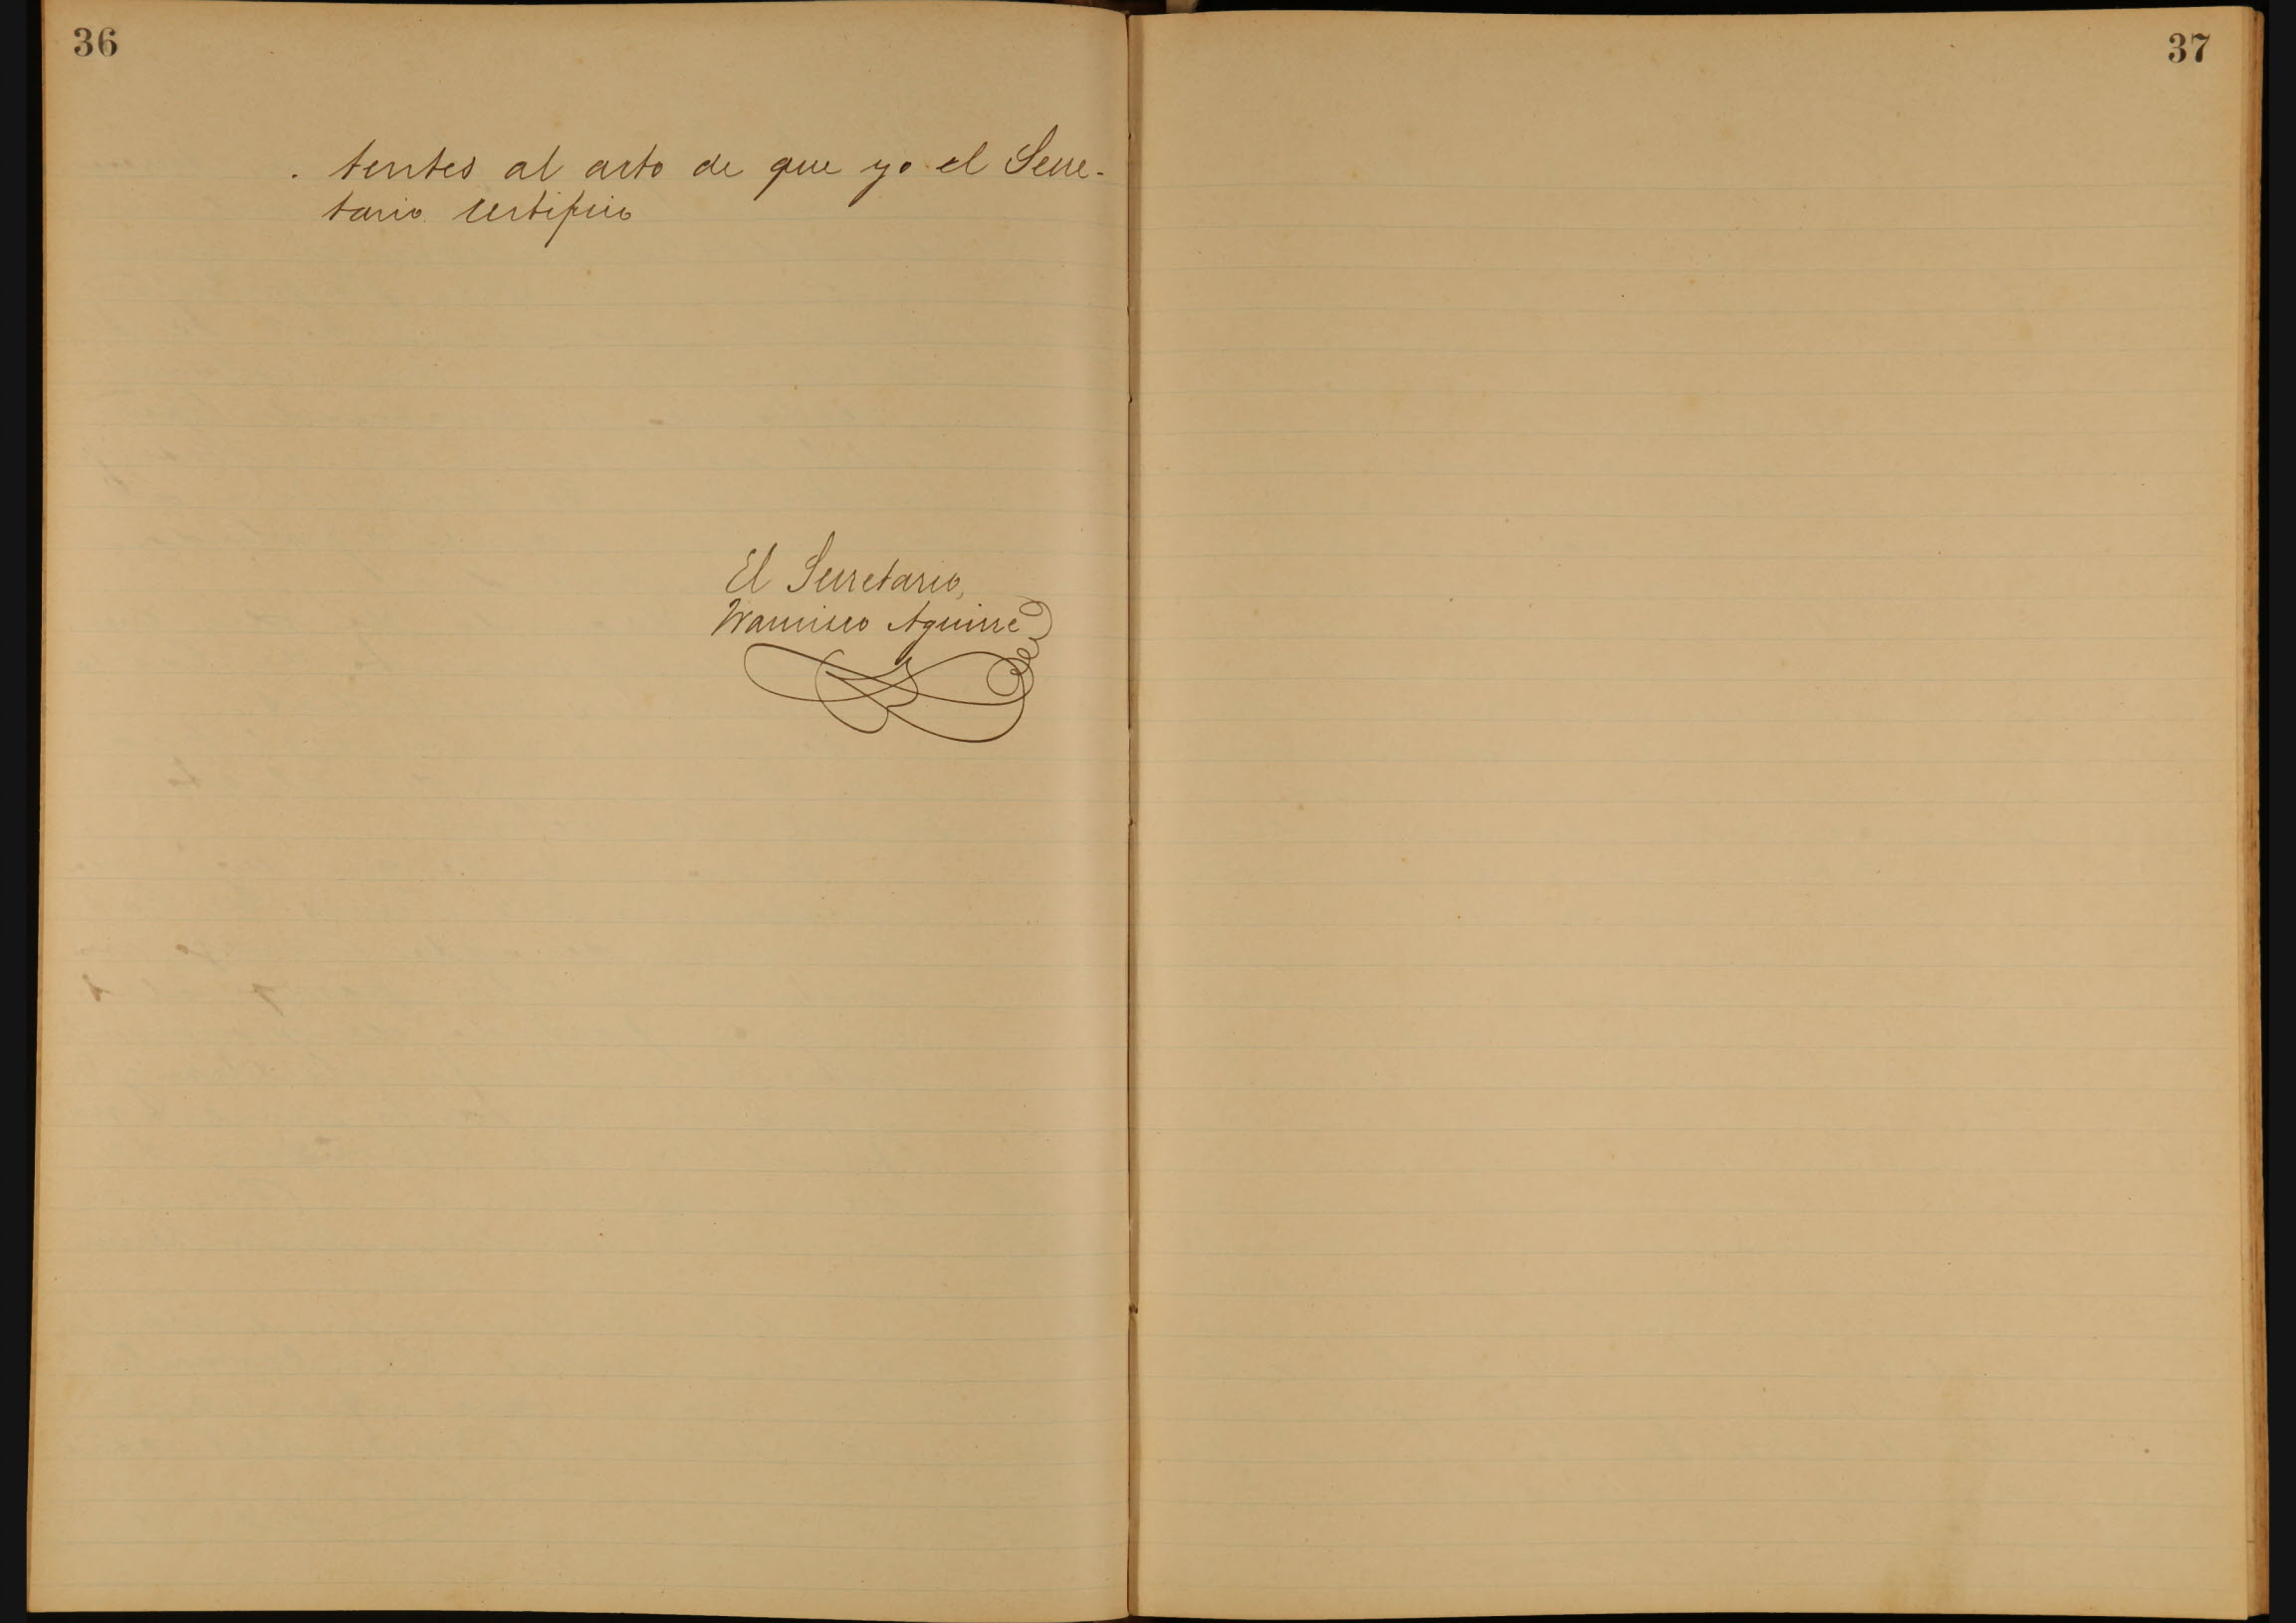 36
tentes al acto de que yo el Secre-
tario certifico
El Secretario,
Francisco Aguirre
37